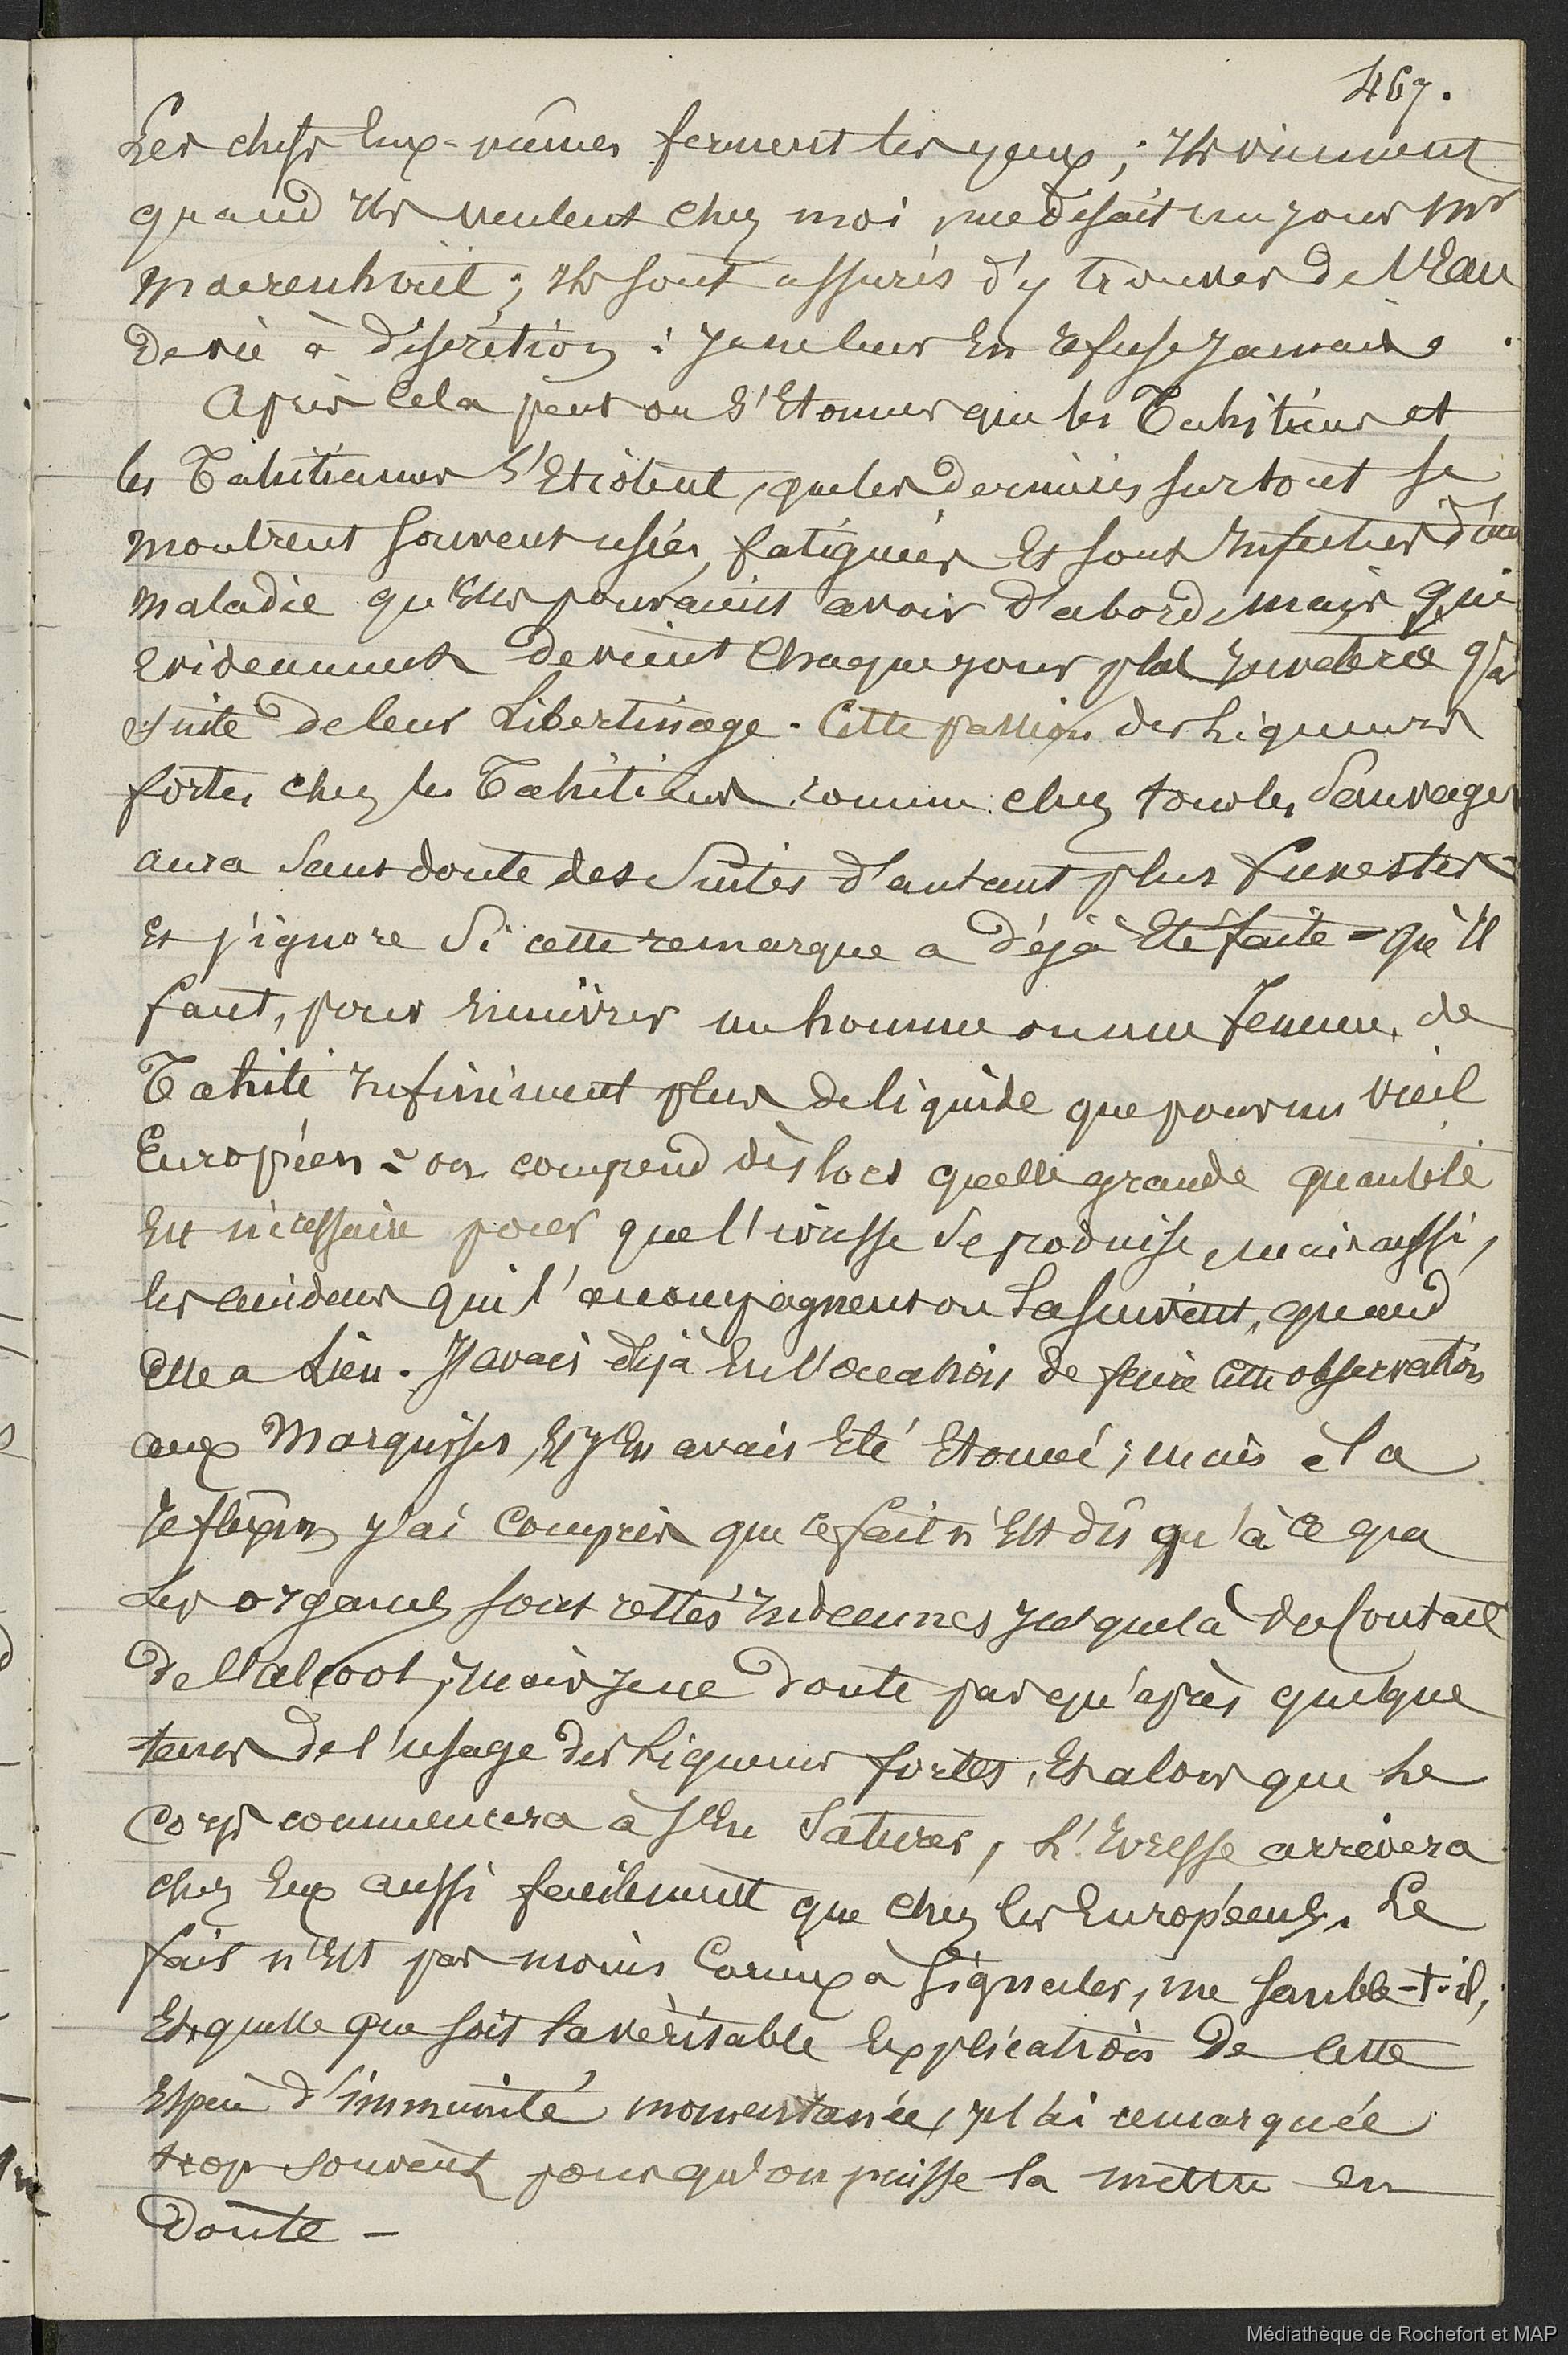 467.
Les chefs Eux-mêmes ferment les yeux ; Ils viennent
quand Ils veulent chez moi, me disait un jour Mr
Moerenhout ; Ils sont assurés d'y trouver de l'Eau
de vie à discrétion : je ne leur En refuse jamais.
Après cela peut on S'Etonner que les Tahitiens et
les Tahitiennes S'Etiolent, que les dernières surtout se
montrent souvent usées, fatiguées Et sont Infectées d'une
maladie qu'Elles pouvaient avoir d'abord, mais qui
Evidemment devient chaque jour plus Invétérée par
suite de leur Libertinage. Cette passion des Liqueurs
fortes chez les Tahitiens comme chez tous les Sauvages
aura Sans doute des Suites d'autant plus funestes -
Et j'ignore Si cette remarque a déjà Eté faite - qu'Il
faut, pour Ennivrer un homme ou une femme, de
Tahiti Infiniment plus de liquide que pour un vieil
Européen - on comprend dès lors quelle grande quantité
Est nécessaire pour que l'ivresse Se produise, mais aussi,
les accidens qui l'accompagnent ou La suivent, quand
Elle a Lieu. J'avais déjà Eu l'occasion de faire Cette observation
aux Marquises, Et j'En avais Eté Etonné ; mais à la
réflexion j'ai Compris que ce fait n'Est dû qu'à ce que
Les organes sont restés Indemnes jusque là du Contact
de l'alcool ; mais je ne doute pas qu'après quelque
tems de l'usage des Liqueurs fortes, Et alors que Le
Corps commencera à s'En Saturer, L'Ivresse arrivera
chez Eux aussi facilement que chez les Européens. Le
fait n'Est pas moins Curieux à Signaler, me semble-t-il,
Et quelle que soit La véritable Explication de Cette
Espèce d'immunité momentanée, je l'ai remarquée
trop souvent pour qu'on puisse la mettre en
Doute -
Médiathèque de Rochefort et MAP